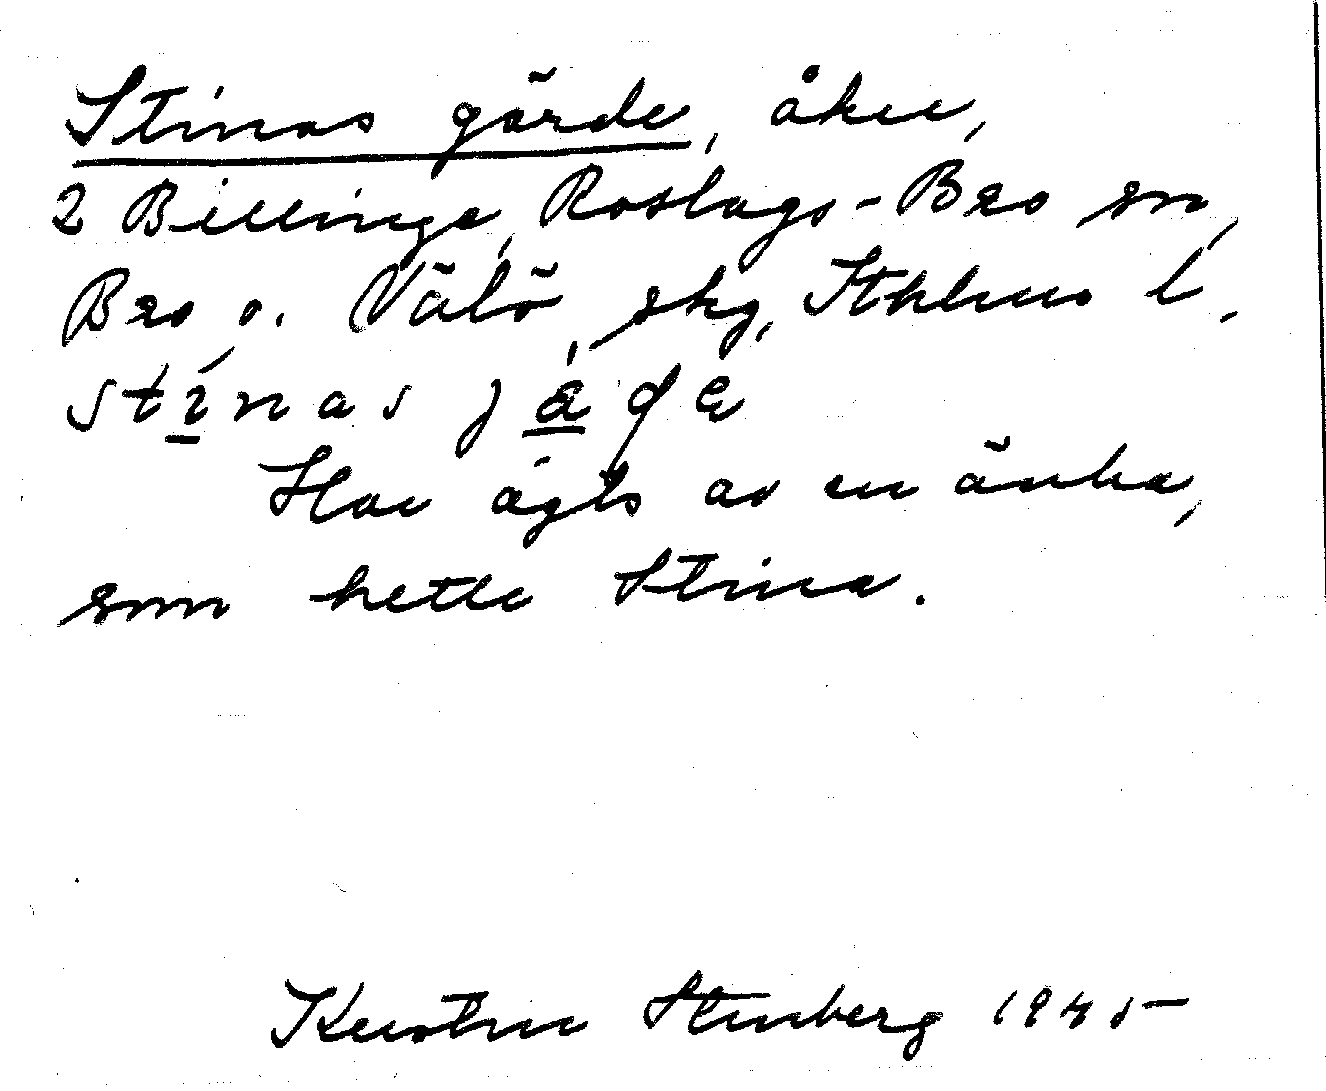 Stinas gärde, åker,
2 Billinge, Roslags-Bro sn,
Bro o. Vätö skg, Sthlms l.
stinas jäḍe
Har ägts av en änka,
som hette Stina.
Kerstin Stenberg 1945